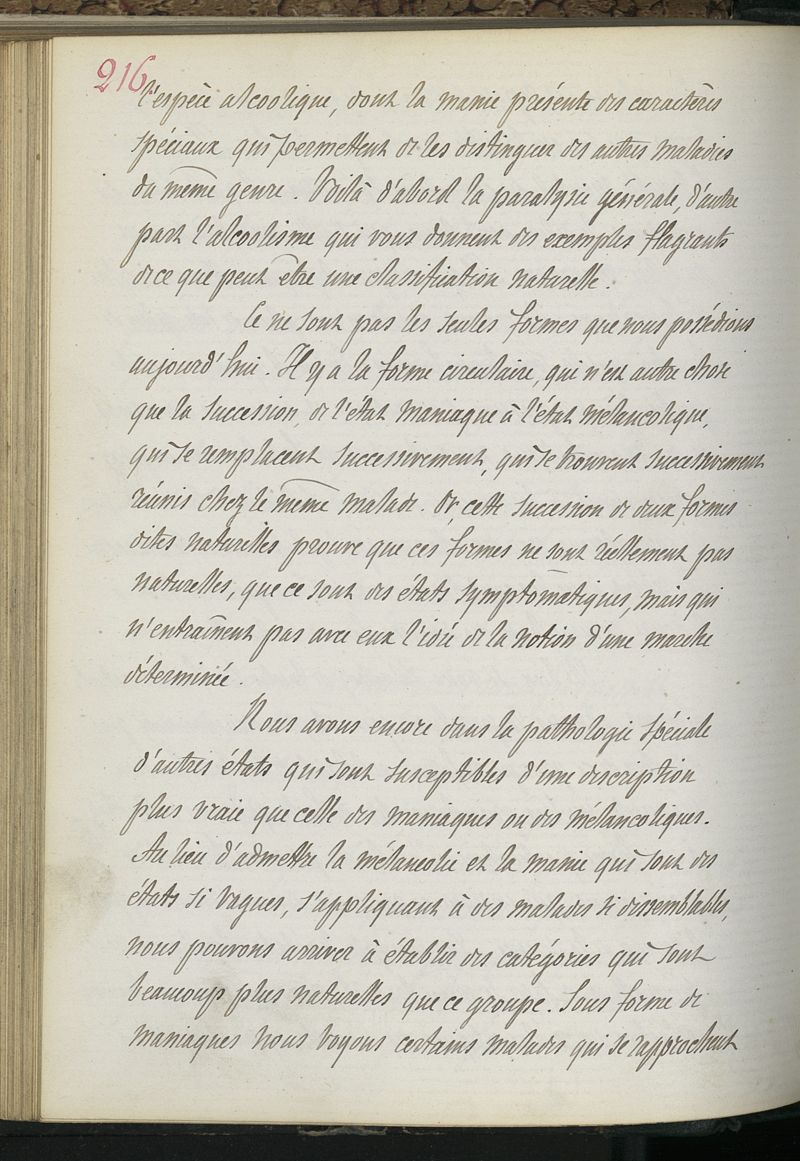 216
l'espèce alcoolique, dont la manie présente des caractères
spéciaux qui permettent de les distinguer des autres maladies
du même genre. Voilà d'abord la paralysie générale, d'autre
part l'alcoolisme qui vous donnent des exemples flagrants
de ce que peut être une classification naturelle.
Ce ne sont pas les seules formes que nous possédions
aujourd'hui. Il y a la forme circulaire, qui n'est autre chose
que la succession, de l'état maniaque à l'état mélancolique,
qui se remplacent successivement, qui se trouvent successivement
réunis chez le même malade. Or, cette succession de deux formes
dites naturelles prouve que ces formes ne sont réellement pas
naturelles, que ce sont des états symptomatiques, mais qui
n'entraînent pas avec eux l'idée de la notion d'une marche
déterminée.
Nous avons encore dans la pathologie spéciale
d'autres états qui sont susceptibles d'une description
plus vraie que celle des maniaques ou des mélancoliques.
Au lieu d'admettre la mélancolie et la manie qui sont des
états si vagues, s'appliquant à des malades si dissemblables,
nous pouvons arriver à établir des catégories qui sont
beaucoup plus naturelles que ce groupe. Sous forme de
maniaques nous voyons certains malades qui se rapprochent